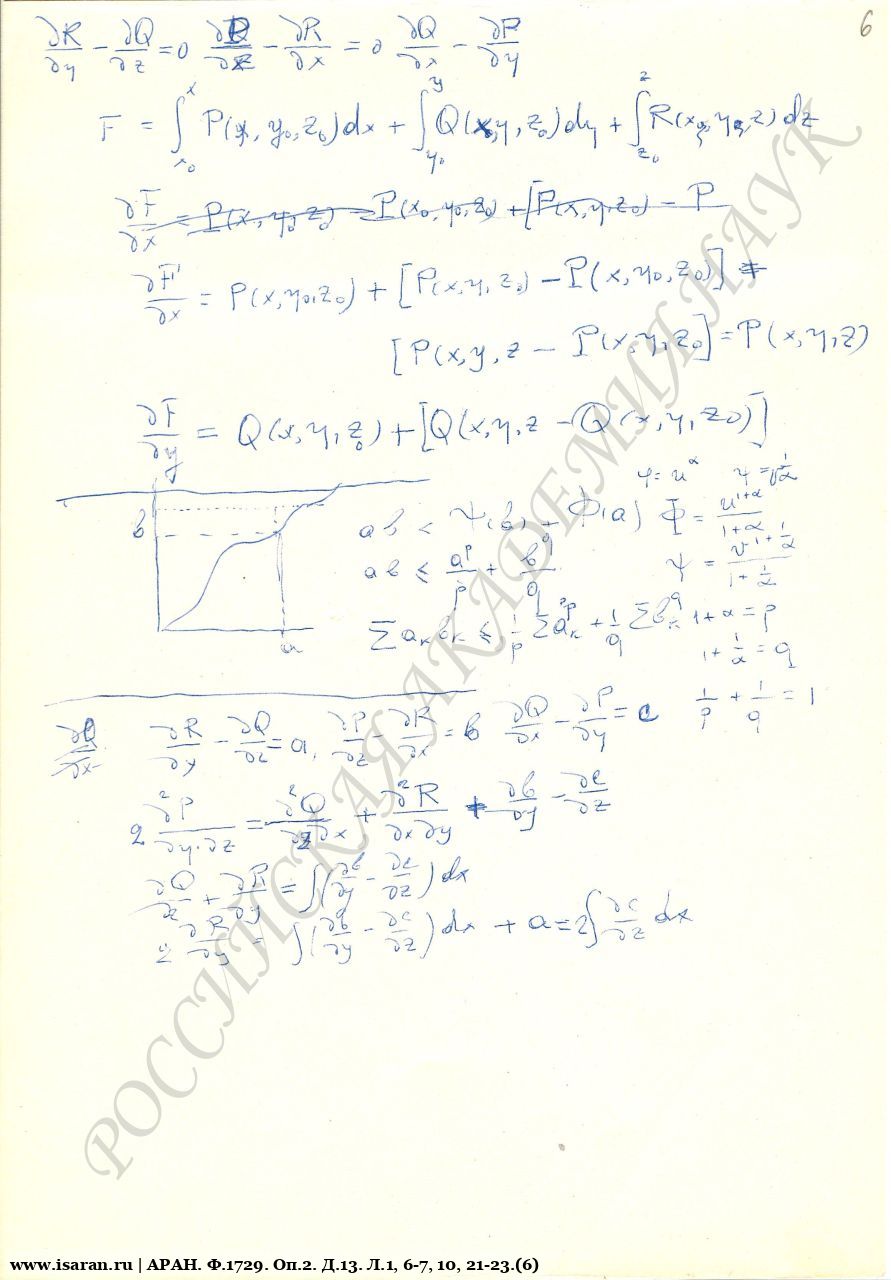 6
∂R/∂y − ∂Q/∂z = 0 ∂P/∂z − ∂R/∂x = 0 ∂Q/∂x − ∂P/∂y
F = ∫_{x₀}^{x} P(x, y₀, z₀) dx + ∫_{y₀}^{y} Q(x, y, z₀) dy + ∫_{z₀}^{z} R(x, y, z) dz
∂F/∂x = P(x, y₀ z₀) − P(x₀, y₀, z₀) + [P(x, y, z₀) − P
∂F/∂x = P(x, y₀, z₀) + [P(x, y, z₀) − P(x, y₀, z₀)] +
[P(x, y, z − P(x, y, z₀] = P(x, y, z)
∂F/∂y = Q(x, y, z₀) + [Q(x, y, z − Q(x, y, z₀)]
φ = u^α ψ = v^{1/α}
b
ab < Ψ(b) + Φ(a) Φ = u^{1+α}/(1+α)
ab ≤ a^p/p + b^q/q ψ = v^{1+1/α}/(1+1/α)
a
∑ aₖbₖ ≤ 1/p ∑ aₖ^p + 1/q ∑ bₖ^q 1 + α = p
1 + 1/α = q
1/p + 1/q = 1
∂Q/∂x ∂R/∂y − ∂Q/∂z = a, ∂P/∂z − ∂R/∂x = b ∂Q/∂x − ∂P/∂y = c
2 ∂²P/∂y·∂z = ∂²Q/∂z∂x + ∂²R/∂x∂y + ∂b/∂y − ∂c/∂z
∂Q/∂z + ∂R/∂y = ∫(∂b/∂y − ∂c/∂z) dx
2 ∂R/∂y = ∫(∂b/∂y − ∂c/∂z) dx + a = 2∫ ∂c/∂z dx
РОССИЙСКАЯ АКАДЕМИЯ НАУК
www.isaran.ru | АРАН. Ф.1729. Оп.2. Д.13. Л.1, 6-7, 10, 21-23.(6)